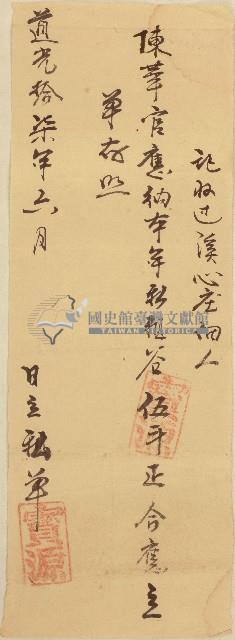 記收过溪心庄佃人
陳華官應納本年私租谷伍斗正合應立
單存照
道光拾柒年六月 日立私單
寶源
國史館臺灣文獻館
TAIWAN HISTORICA